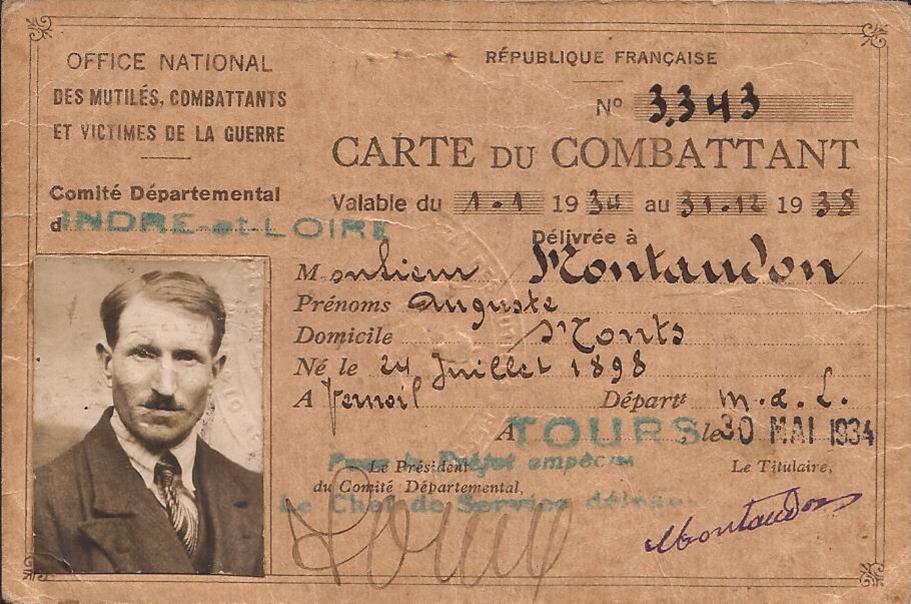 OFFICE NATIONAL
DES MUTILÉS, COMBATTANTS
ET VICTIMES DE LA GUERRE
Comité Départemental
d'INDRE-et-LOIRE
RÉPUBLIQUE FRANÇAISE
N° 3.343
CARTE DU COMBATTANT
Valable du 1-1 1934 au 31-12 1938
Délivrée à
Monsieur Montaudon
Prénoms Auguste
Domicile Monts
Né le 24 Juillet 1898
A Vernoil Départt M. & L.
A TOURS, le 30 MAI 1934
Pour le Préfet empêché
Le Président
du Comité Départemental,
Le Chef de Service délégué
Le Titulaire,
Montaudon